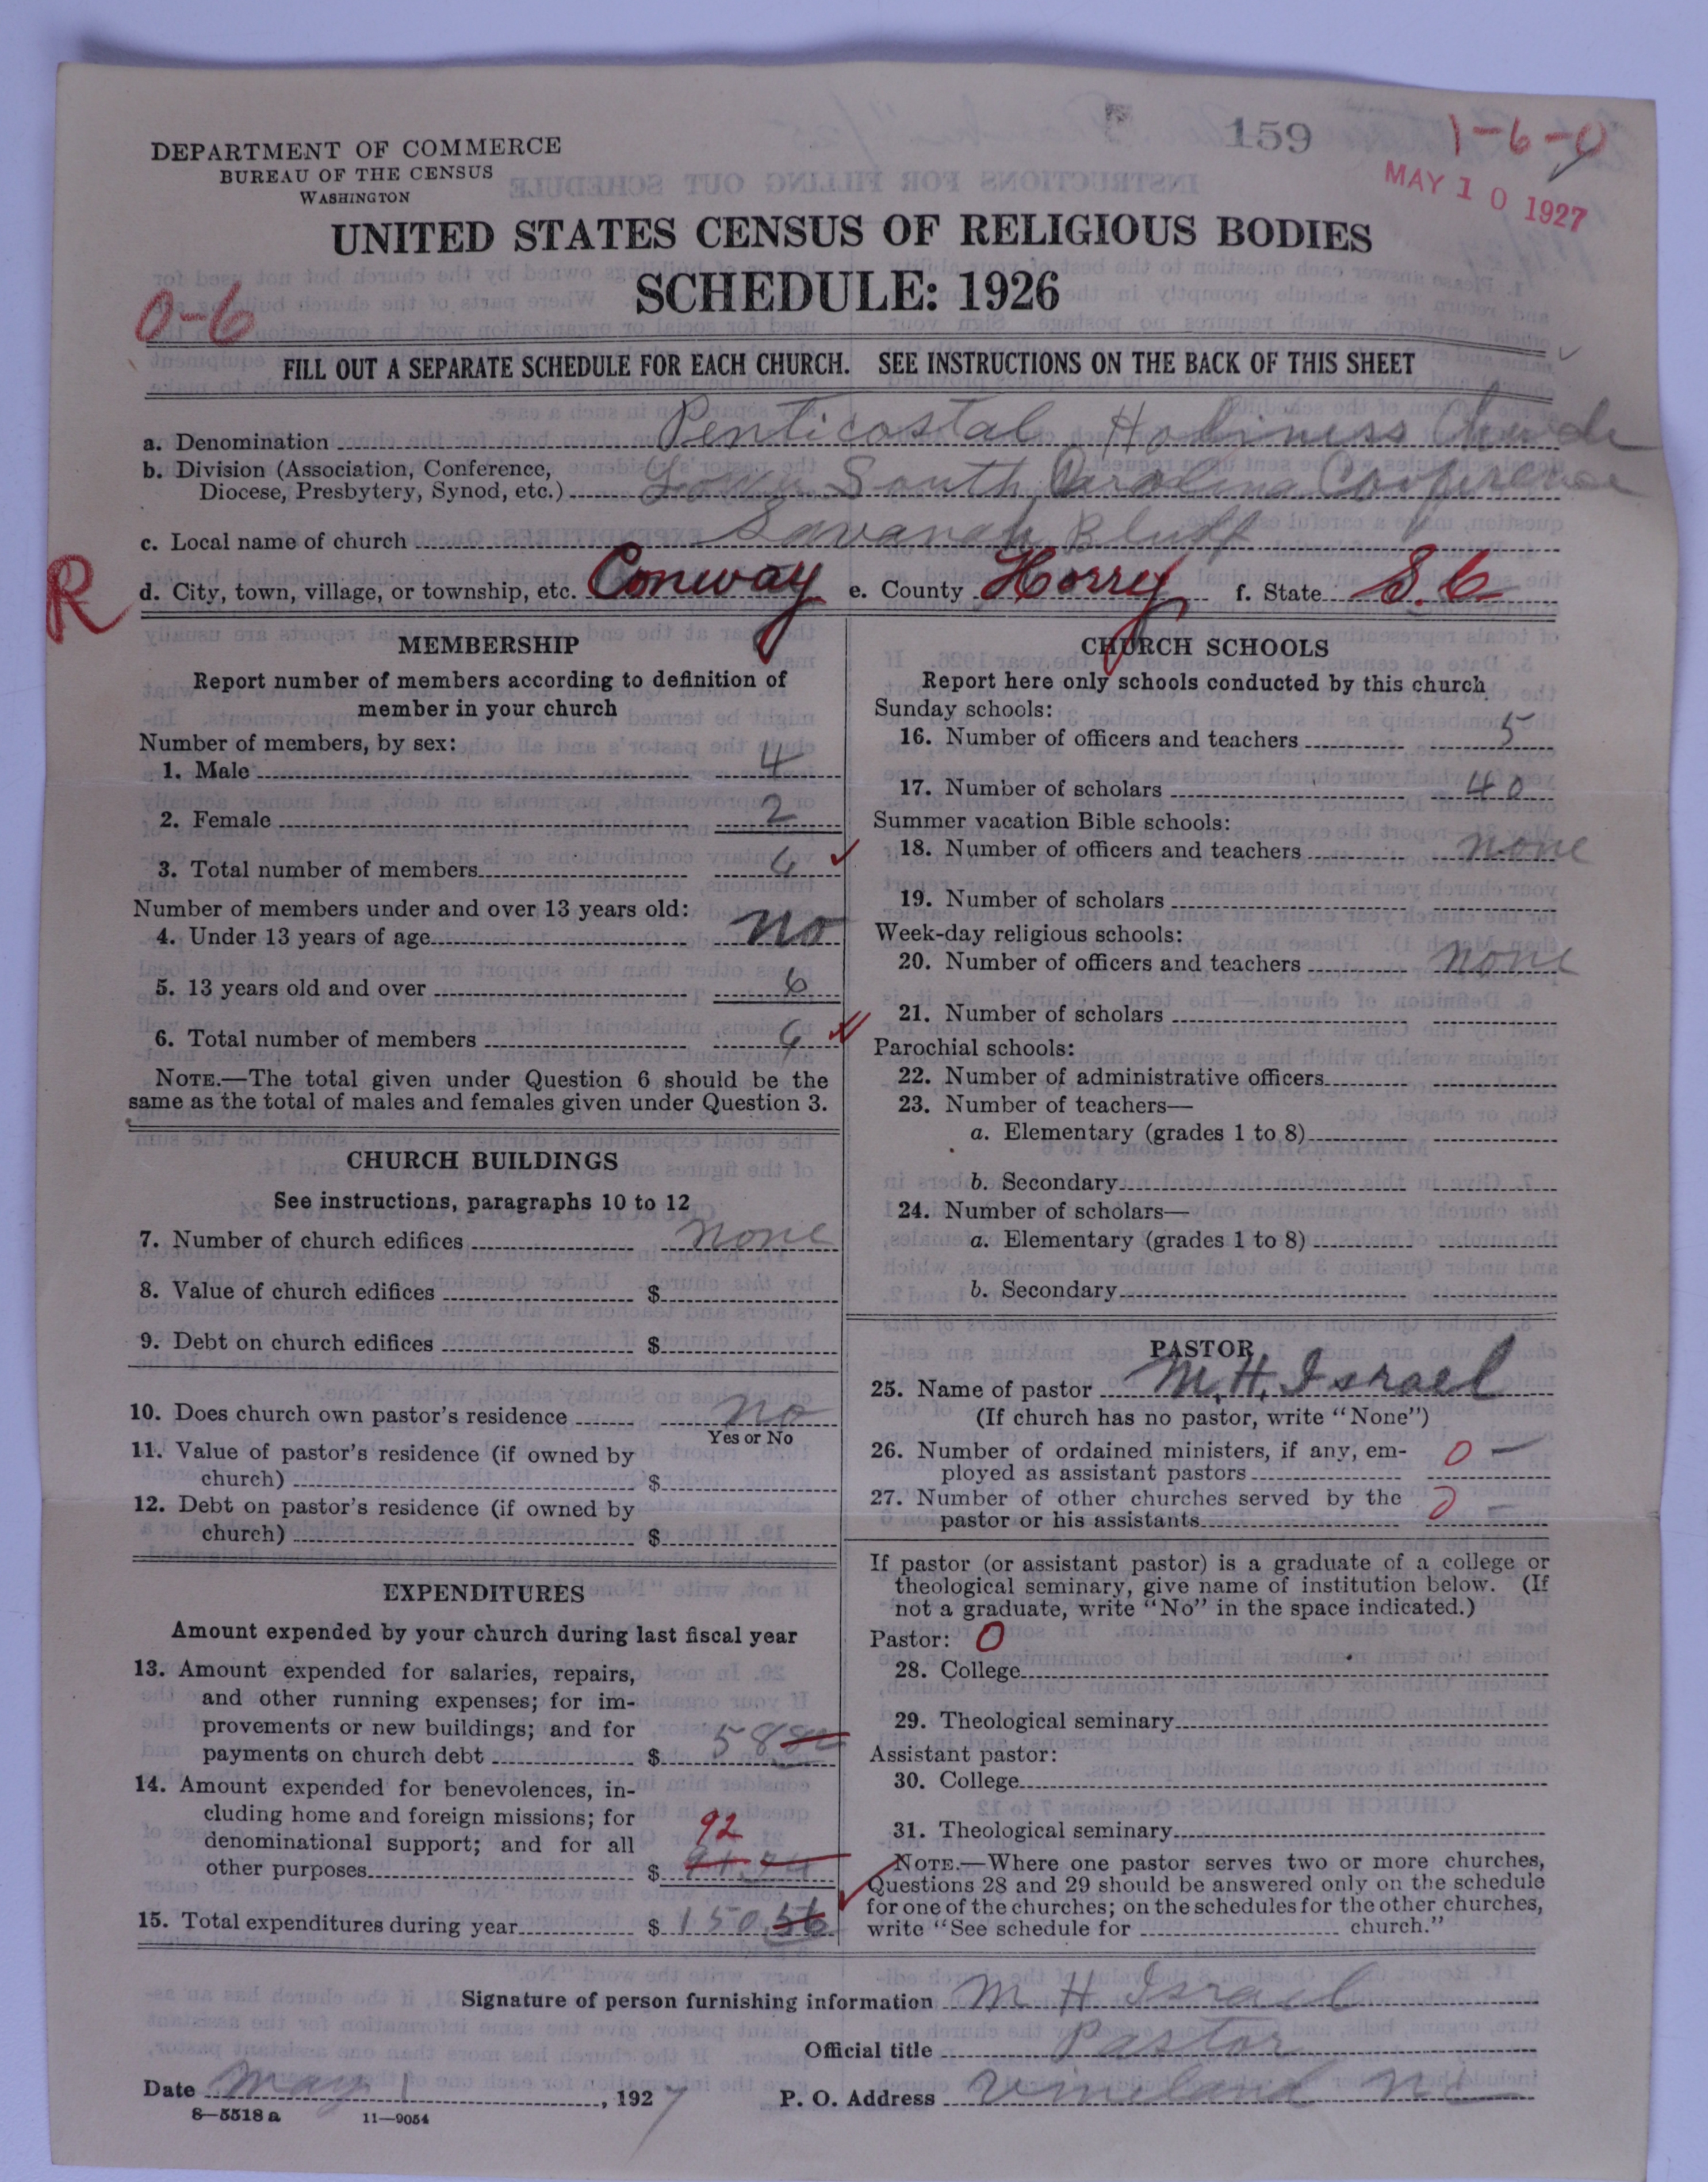 159
1-6-0
MAY 10 1927
DEPARTMENT OF COMMERCE
BUREAU OF THE CENSUS
WASHINGTON
UNITED STATES CENSUS OF RELIGIOUS BODIES
SCHEDULE: 1926
0-6
FILL OUT A SEPARATE SCHEDULE FOR EACH CHURCH. SEE INSTRUCTIONS ON THE BACK OF THIS SHEET
a. Denomination Penticostal Holiness
b. Division (Association, Conference,
Diocese, Presbytery, Synod, etc.) South Carolina Conference
c. Local name of church Savanah Bluff
R
d. City, town, village, or township, etc. Conway e. County Horry f. State S.C
MEMBERSHIP
Report number of members according to definition of
member in your church
Number of members, by sex:
1. Male 4
2. Female 2
3. Total number of members 6
Number of members under and over 13 years old:
4. Under 13 years of age no
5. 13 years old and over 6
6. Total number of members 6
NOTE.—The total given under Question 6 should be the
same as the total of males and females given under Question 3.
CHURCH BUILDINGS
See instructions, paragraphs 10 to 12
7. Number of church edifices none
8. Value of church edifices $
9. Debt on church edifices $
10. Does church own pastor's residence no
Yes or No
11. Value of pastor's residence (if owned by
church) $
12. Debt on pastor's residence (if owned by
church) $
EXPENDITURES
Amount expended by your church during last fiscal year
13. Amount expended for salaries, repairs,
and other running expenses; for im-
provements or new buildings; and for
payments on church debt $ 58
14. Amount expended for benevolences, in-
cluding home and foreign missions; for
denominational support; and for all
92
other purposes $ 91.74
15. Total expenditures during year $ 150.56
CHURCH SCHOOLS
Report here only schools conducted by this church
Sunday schools:
16. Number of officers and teachers 5
17. Number of scholars 40
Summer vacation Bible schools:
18. Number of officers and teachers none
19. Number of scholars
Week-day religious schools:
20. Number of officers and teachers none
21. Number of scholars
Parochial schools:
22. Number of administrative officers
23. Number of teachers—
a. Elementary (grades 1 to 8)
b. Secondary
24. Number of scholars—
a. Elementary (grades 1 to 8)
b. Secondary
PASTOR
25. Name of pastor M. H. Israel
(If church has no pastor, write "None")
26. Number of ordained ministers, if any, em-
ployed as assistant pastors 0 —
27. Number of other churches served by the
pastor or his assistants 0 —
If pastor (or assistant pastor) is a graduate of a college or
theological seminary, give name of institution below. (If
not a graduate, write "No" in the space indicated.)
Pastor: 0
28. College
29. Theological seminary
Assistant pastor:
30. College
31. Theological seminary
NOTE.—Where one pastor serves two or more churches,
Questions 28 and 29 should be answered only on the schedule
for one of the churches; on the schedules for the other churches,
write "See schedule for church."
Signature of person furnishing information M H Israel
Official title Pastor
Date May 1, 1927 P. O. Address Vineland N C
8—5518 a 11—9054